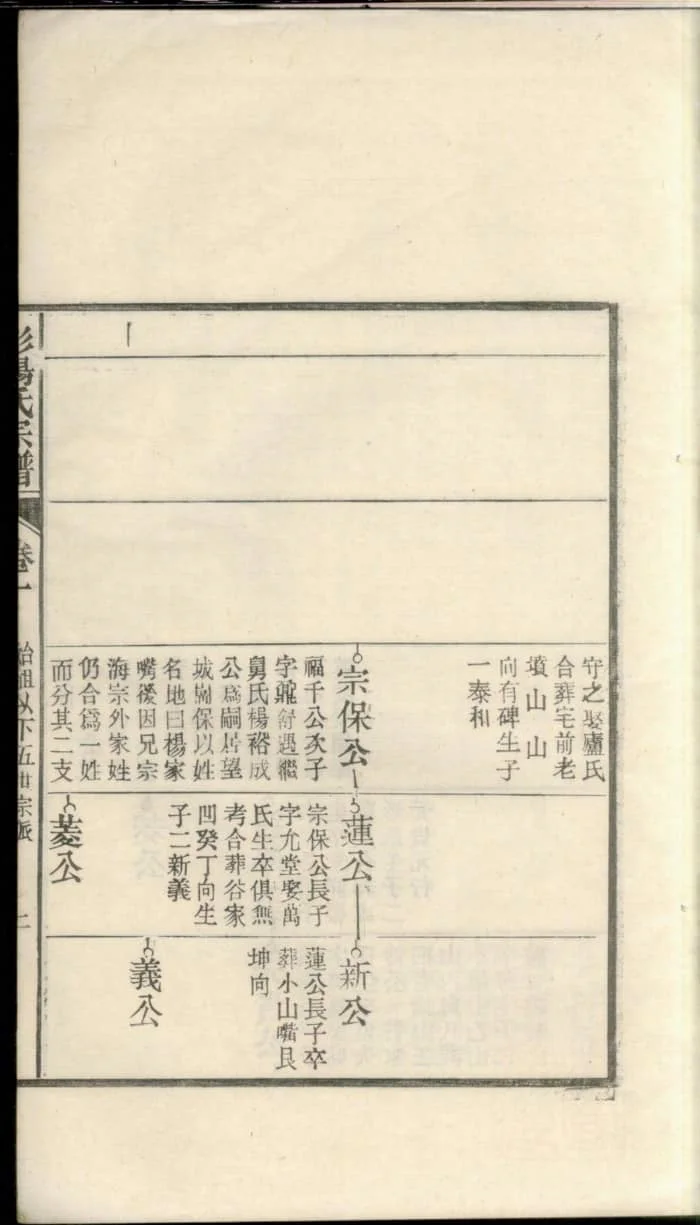 守之娶廬氏
合葬宅前老
墳山　山
向有碑生子
一泰和
宗保公
福千公次子
字龍舒過繼
舅氏楊裕成
公爲嗣居望
城崗保以姓
名地曰楊家
嘴後因兄宗
海宗外家姓
仍合爲一姓
而分其二支
蓮公
宗保公長子
字允堂娶萬
氏生卒俱無
考合葬谷家
凹癸丁向生
子二新義
菱公
新公
蓮公長子卒
葬小山嘴艮
坤向
義公
楊氏宗譜
卷一
始祖以下五世宗派
二